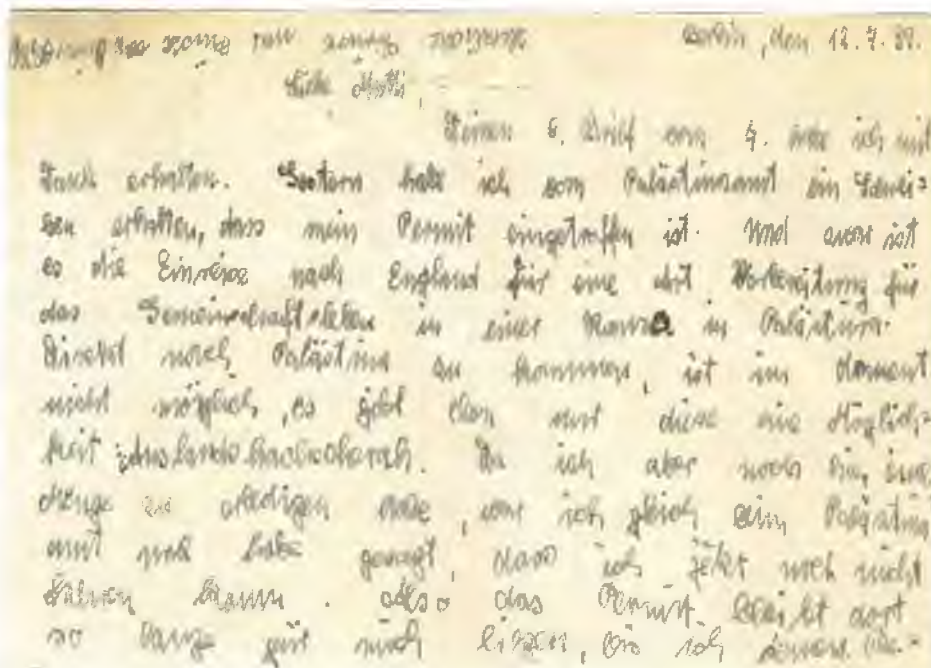 Berlin, den 12.7.39.
Liebe Mutti,
Deinen 6. Brief vom 4. habe ich mit
Dank erhalten. Gestern habe ich vom Palästinaamt ein Schrei=
ben erhalten, dass mein Permit eingetroffen ist. Und zwar ist
es die Einreise nach England für eine Vorbereitung für
das Gemeinschaftsleben in einer in Palästina.
Direkt nach Palästina zu kommen, ist im Moment
nicht möglich, es gibt eben nur diese eine Möglich=
keit: Auslandshachscharah. Da ich aber noch hier eine
Menge zu erledigen habe, war ich gleich beim Palästina
amt und habe gesagt, dass ich jetzt noch nicht
fahren kann. Also das Permit bleibt dort
so lange für mich liegen, bis ich